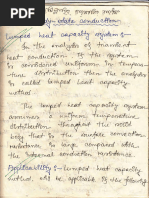 dy-state conduction
Lumped heat capacity system:-
In the analysis of transient
heat conduction if the system is
considered uniform in temperature
distribution then the analysis
is called lumped heat capacity
system.
The lumped heat capacity system
assumes a uniform temperature
distribution throughout the solid
body. the surface convection
resistance is large compared with
the internal conduction
resistance
Applicability:- Lumped heat capacity
method will be applicable if the following